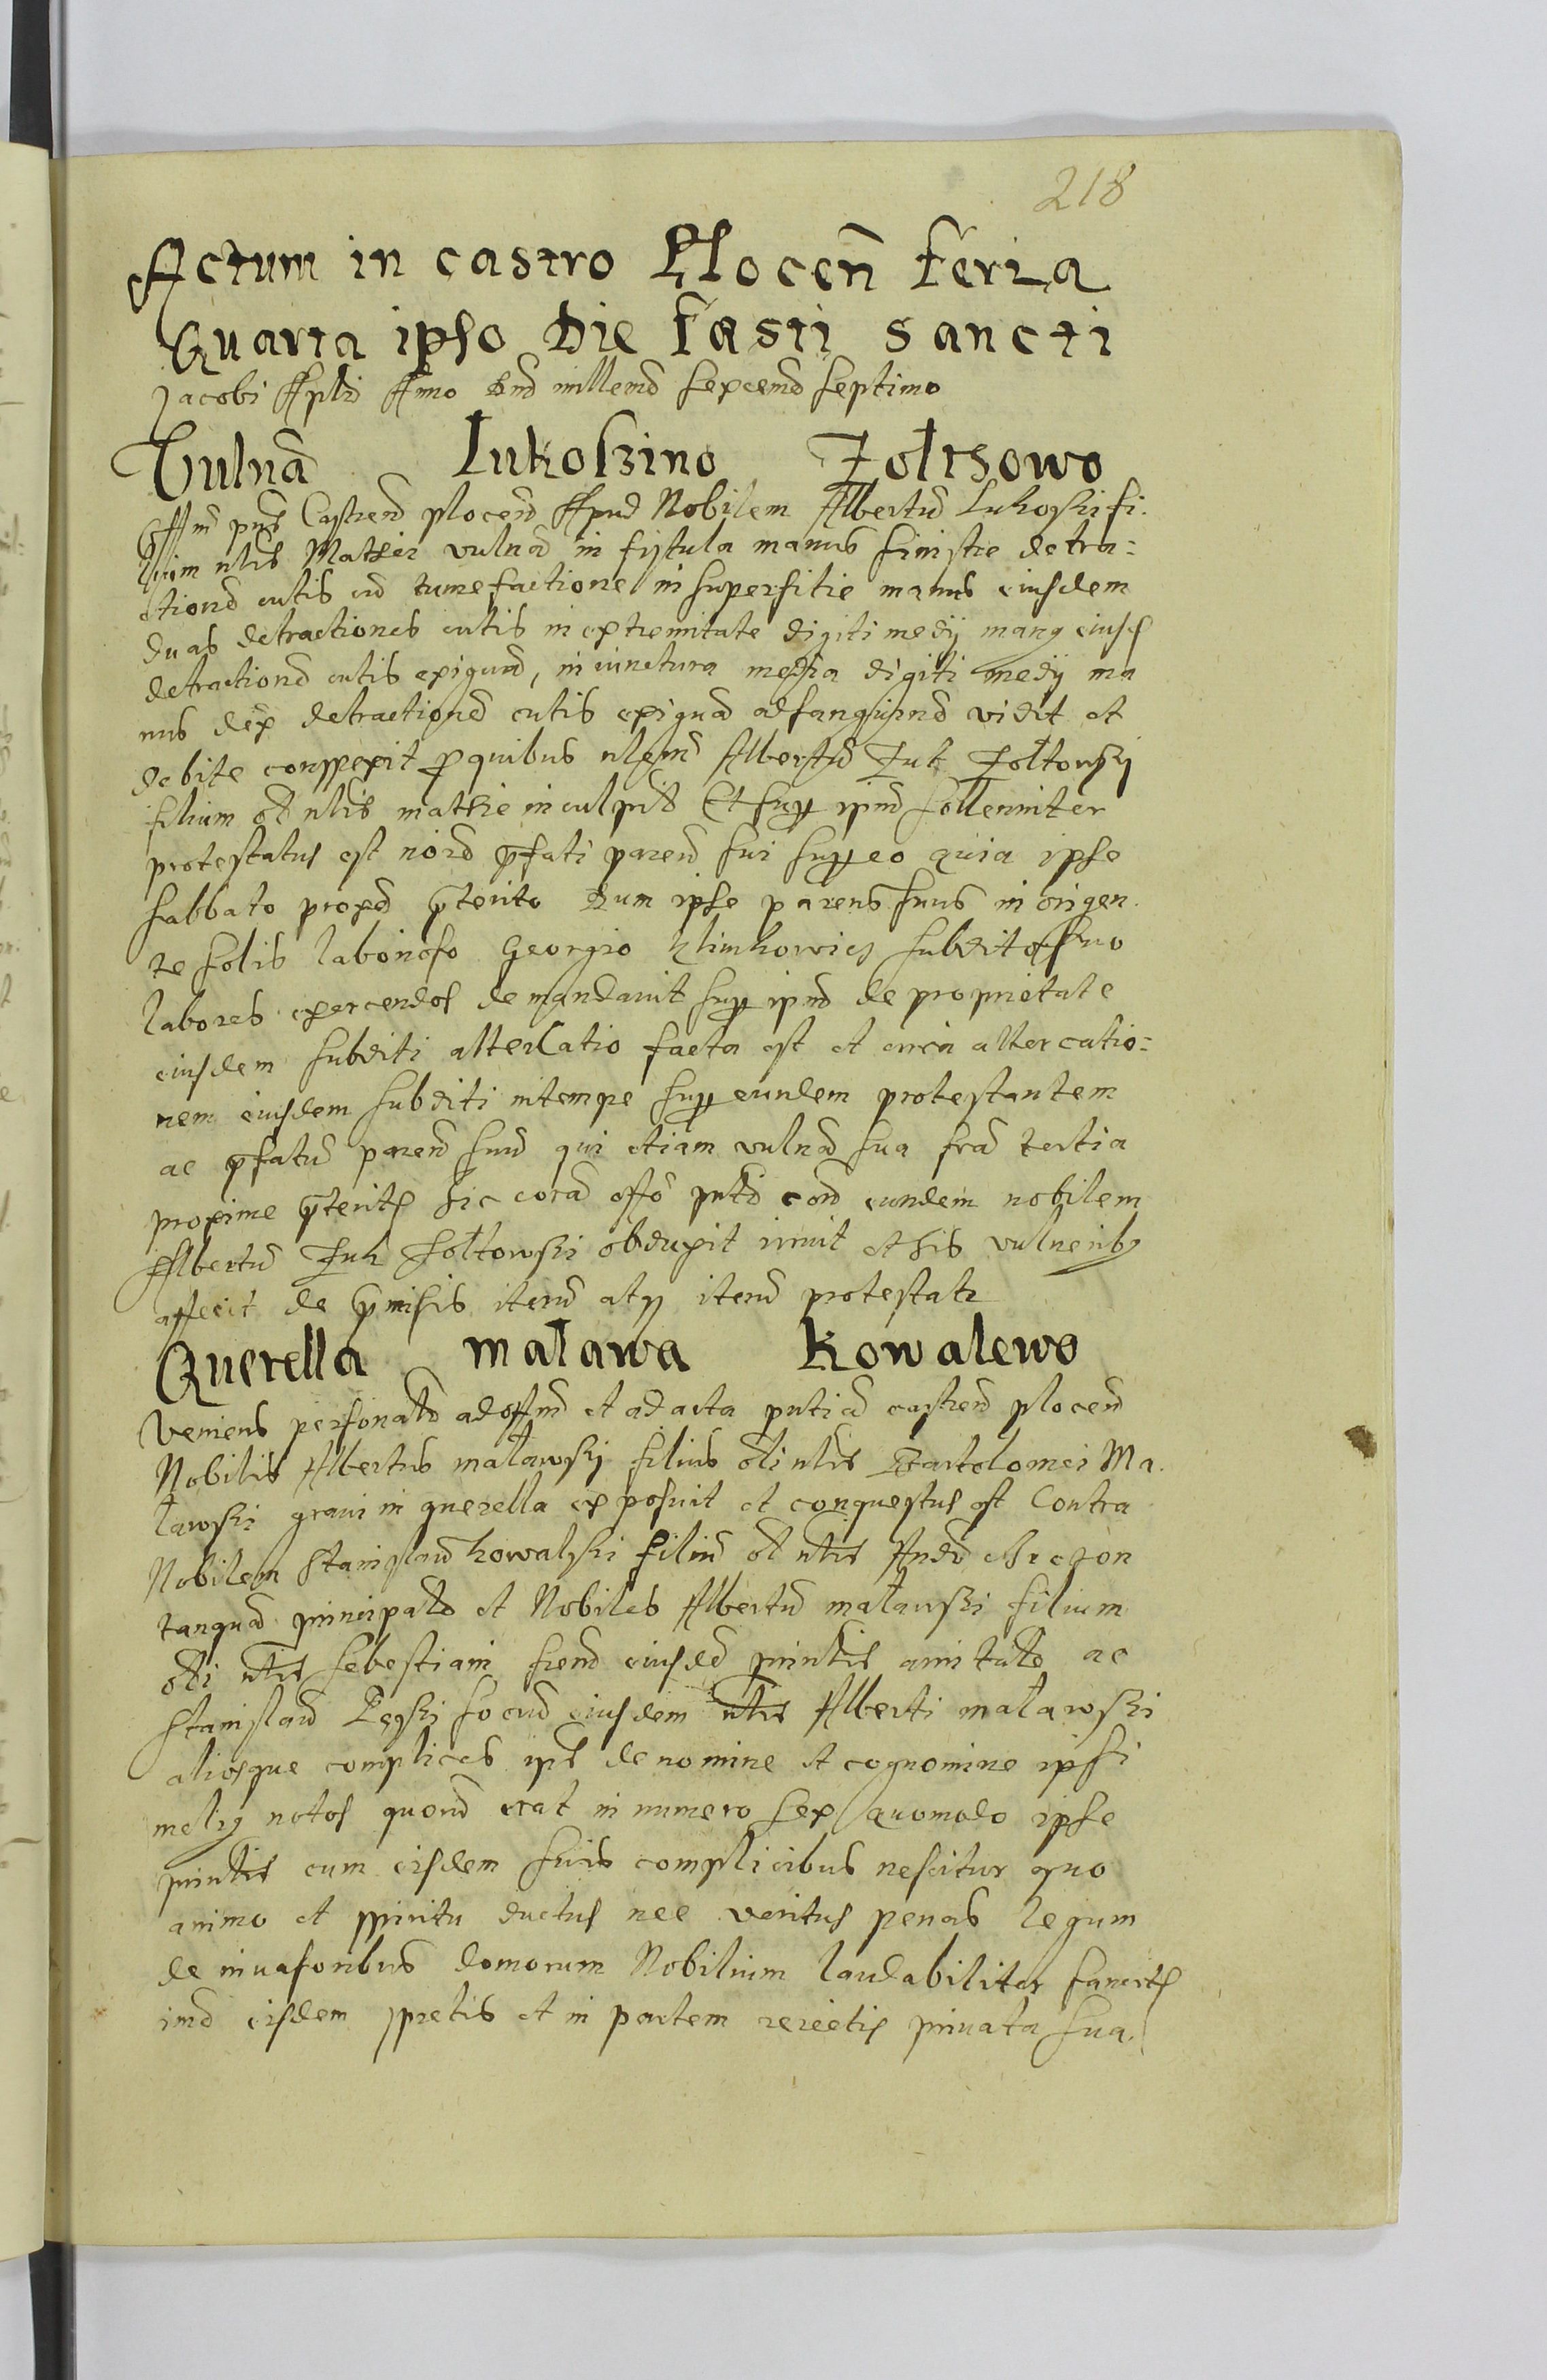 218
Actum in castro Plocen̄ feria
Quarta ipso Die fæsti sancti
Jacobi Apli Anno Dnd millemo sexcemo septimo
Vulnā Łukoszino Żołthowo
Offm pns Castrens plocens Apud Nobilem Albertū Lukoski fi-
lium nlis Mathie vulnā in fistula manus sinistre detra=
ctiond cutis cū tumefactione in superfitie manus eiusdem
duas detractiones cutis in extremitate digiti medij manq eiusd
detractiond cutis exiguā, in iunctura media digiti medij ma
nus dex detractionē cutis exiguā ad sanguinē vidit et
debite conspexit p quibus nlem Albertū Żuk Żołtowskj
filium ol nlis mathie inculpat Et sup ipm sollenniter
protestatus est noīe pfati parend sui sup eo quia ipse
sabbato proxe pterito dum ipse parens suus in origen-
te solis laborioso Georgio Klimkowicz subdito suo
labores exercendos demandavit sup ipm de proprietate
eiusdem subditi alterCatio facta est et circa altercatio=
nem eiusdem subditi intempe sup eundem protestantem
ac pfatū parend suū qui etiam vulnā sua fra tertia
proxime pterita hic corā offo pntd cord eundem nobilem
Albertū Żuk Żołtowski obduxit irruit et his vulneribq
affecit de pmissis iterū atq iterū protestatr
Querella maława Kowalewo
Veniens personalr ad offm et ad acta pntia castrens plocens
Nobilis Albertus maławskj filius oli nlis Bartolomei Ma-
ławski gravi in querella exposuit et conquestus est Contra
Nobilem Stanislaū kowalski filiū ol nlis Andr
tanquā principale et Nobiles Albertū maławski filium
oli nlis Sebestiani eiusdē prinlis ac
Stanislaū eiusdem nlis Alberti maławski
aliosque complices ips de nomine et cognomine ipsi
meliq notos quord erat in numero sex quomodo ipse
prinlis cum eisdem suis complicibus nescitur quo
animo et spiritu ductus nec veritus penas legum
de invasoribus domorum Nobilium laudabiliter sancitas
imo eisdem spretis et in partem reiectis privata sua